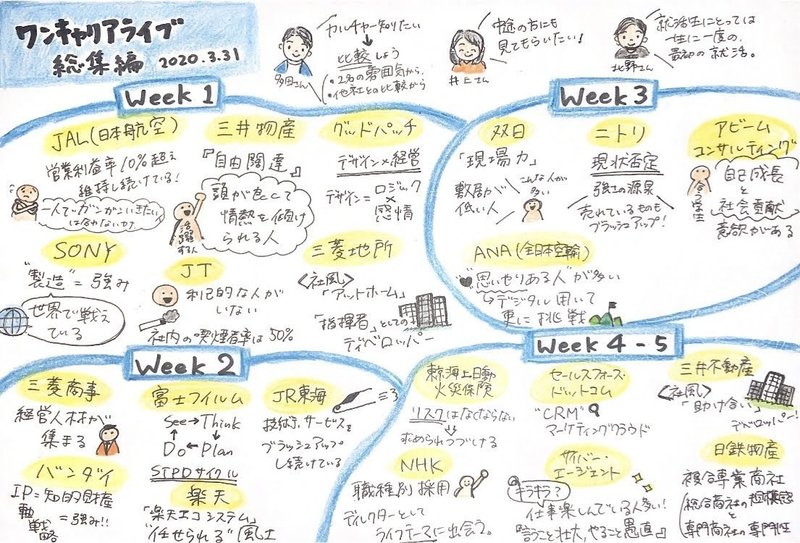 ワンキャリアライブ
総集編 2020.3.31
カルチャー知りたい
↓
比較しよう
・2名の雰囲気から
・他社との比較から
多田さん
中途の方にも
見てもらいたい!
井上さん
就活生にとっては
一生に一度の、
最初の就活。
北野さん
Week 1
JAL(日本航空)
営業利益率10%超え
維持し続けている!
一人でガンガンいきたい
は合わないかも
三井物産
『自由闊達』
頭が良くて
情熱を傾け
られる人
活躍する人
グッドパッチ
デザイン×経営
デザイン=ロジック
×
感情
SONY
"製造"=強み
世界で戦え
ている
JT
利己的な人が
いない
社内の喫煙者率は50%
三菱地所
〈社風〉
「アットホーム」
「指揮者」としての
ディベロッパー
Week 3
双日
「現場力」
敷居が
低い人
こんな人が
多い
ニトリ
現状否定
強さの源泉
売れているものも
ブラッシュアップ!
アビーム
コンサルティング
自己成長
と
社会貢献
意欲がある
ANA(全日本空輸)
"思いやりある人"が多い
↳デジタル用いて
更に挑戦
Week 2
三菱商事
経営人材が
集まる
富士フイルム
See→Think
↑ ↓
Do←Plan
STPDサイクル
JR東海
技術力、サービスを
ブラッシュアップ
し続けている
バンダイ
IP=知的財産
軸
戦略
=強み!!
楽天
「楽天エコシステム」
"任せられる"風土
Week 4-5
東京海上日動
火災保険
リスクはなくならない
↓
求められつづける
セールスフォース・
ドットコム
"CRM"
マーケティングクラウド
三井不動産
〈社風〉
「助け合い」
デベロッパー!
NHK
職種別採用
ディレクターとして
ライフテーマに出会う。
サイバー・
エージェント
キラキラ?
仕事楽しんでいる人多い!
『言うこと壮大、やること愚直』
日鉄物産
複合専業商社
(総合商社の規模感
と
専門商社の専門性)